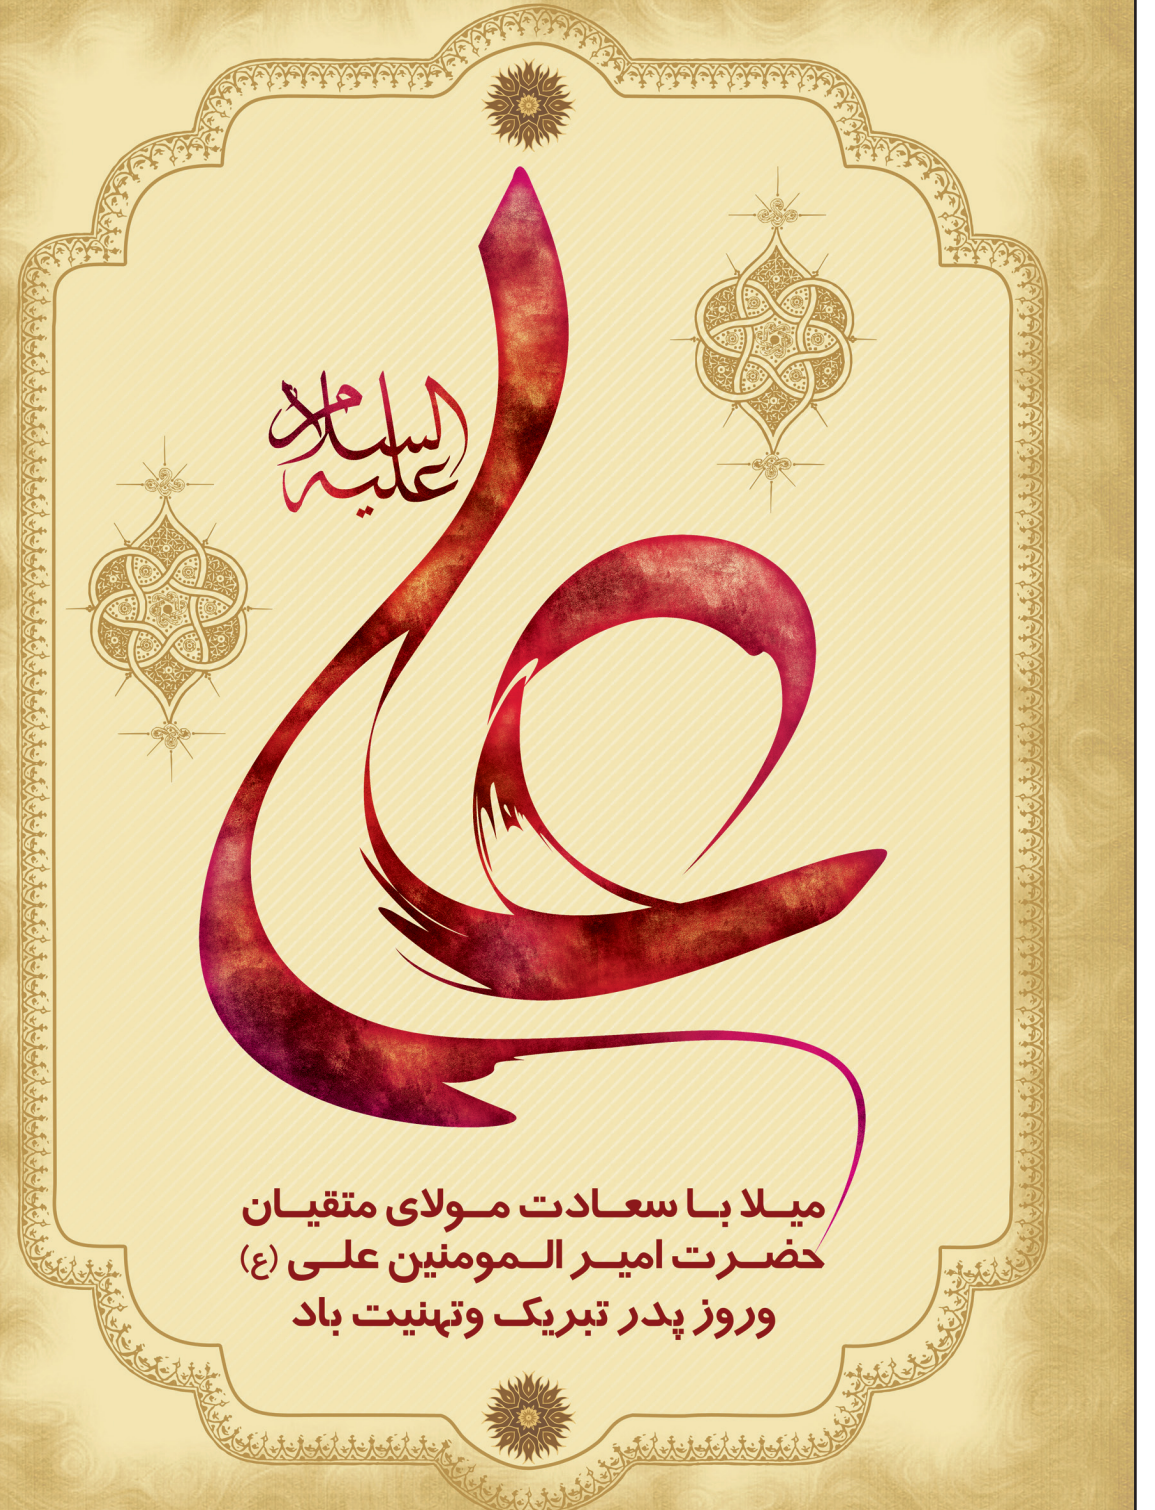 علی
علیه السلام
میلا با سعادت مولای متقیان
حضرت امیر المومنین علی (ع)
وروز پدر تبریک وتهنیت باد